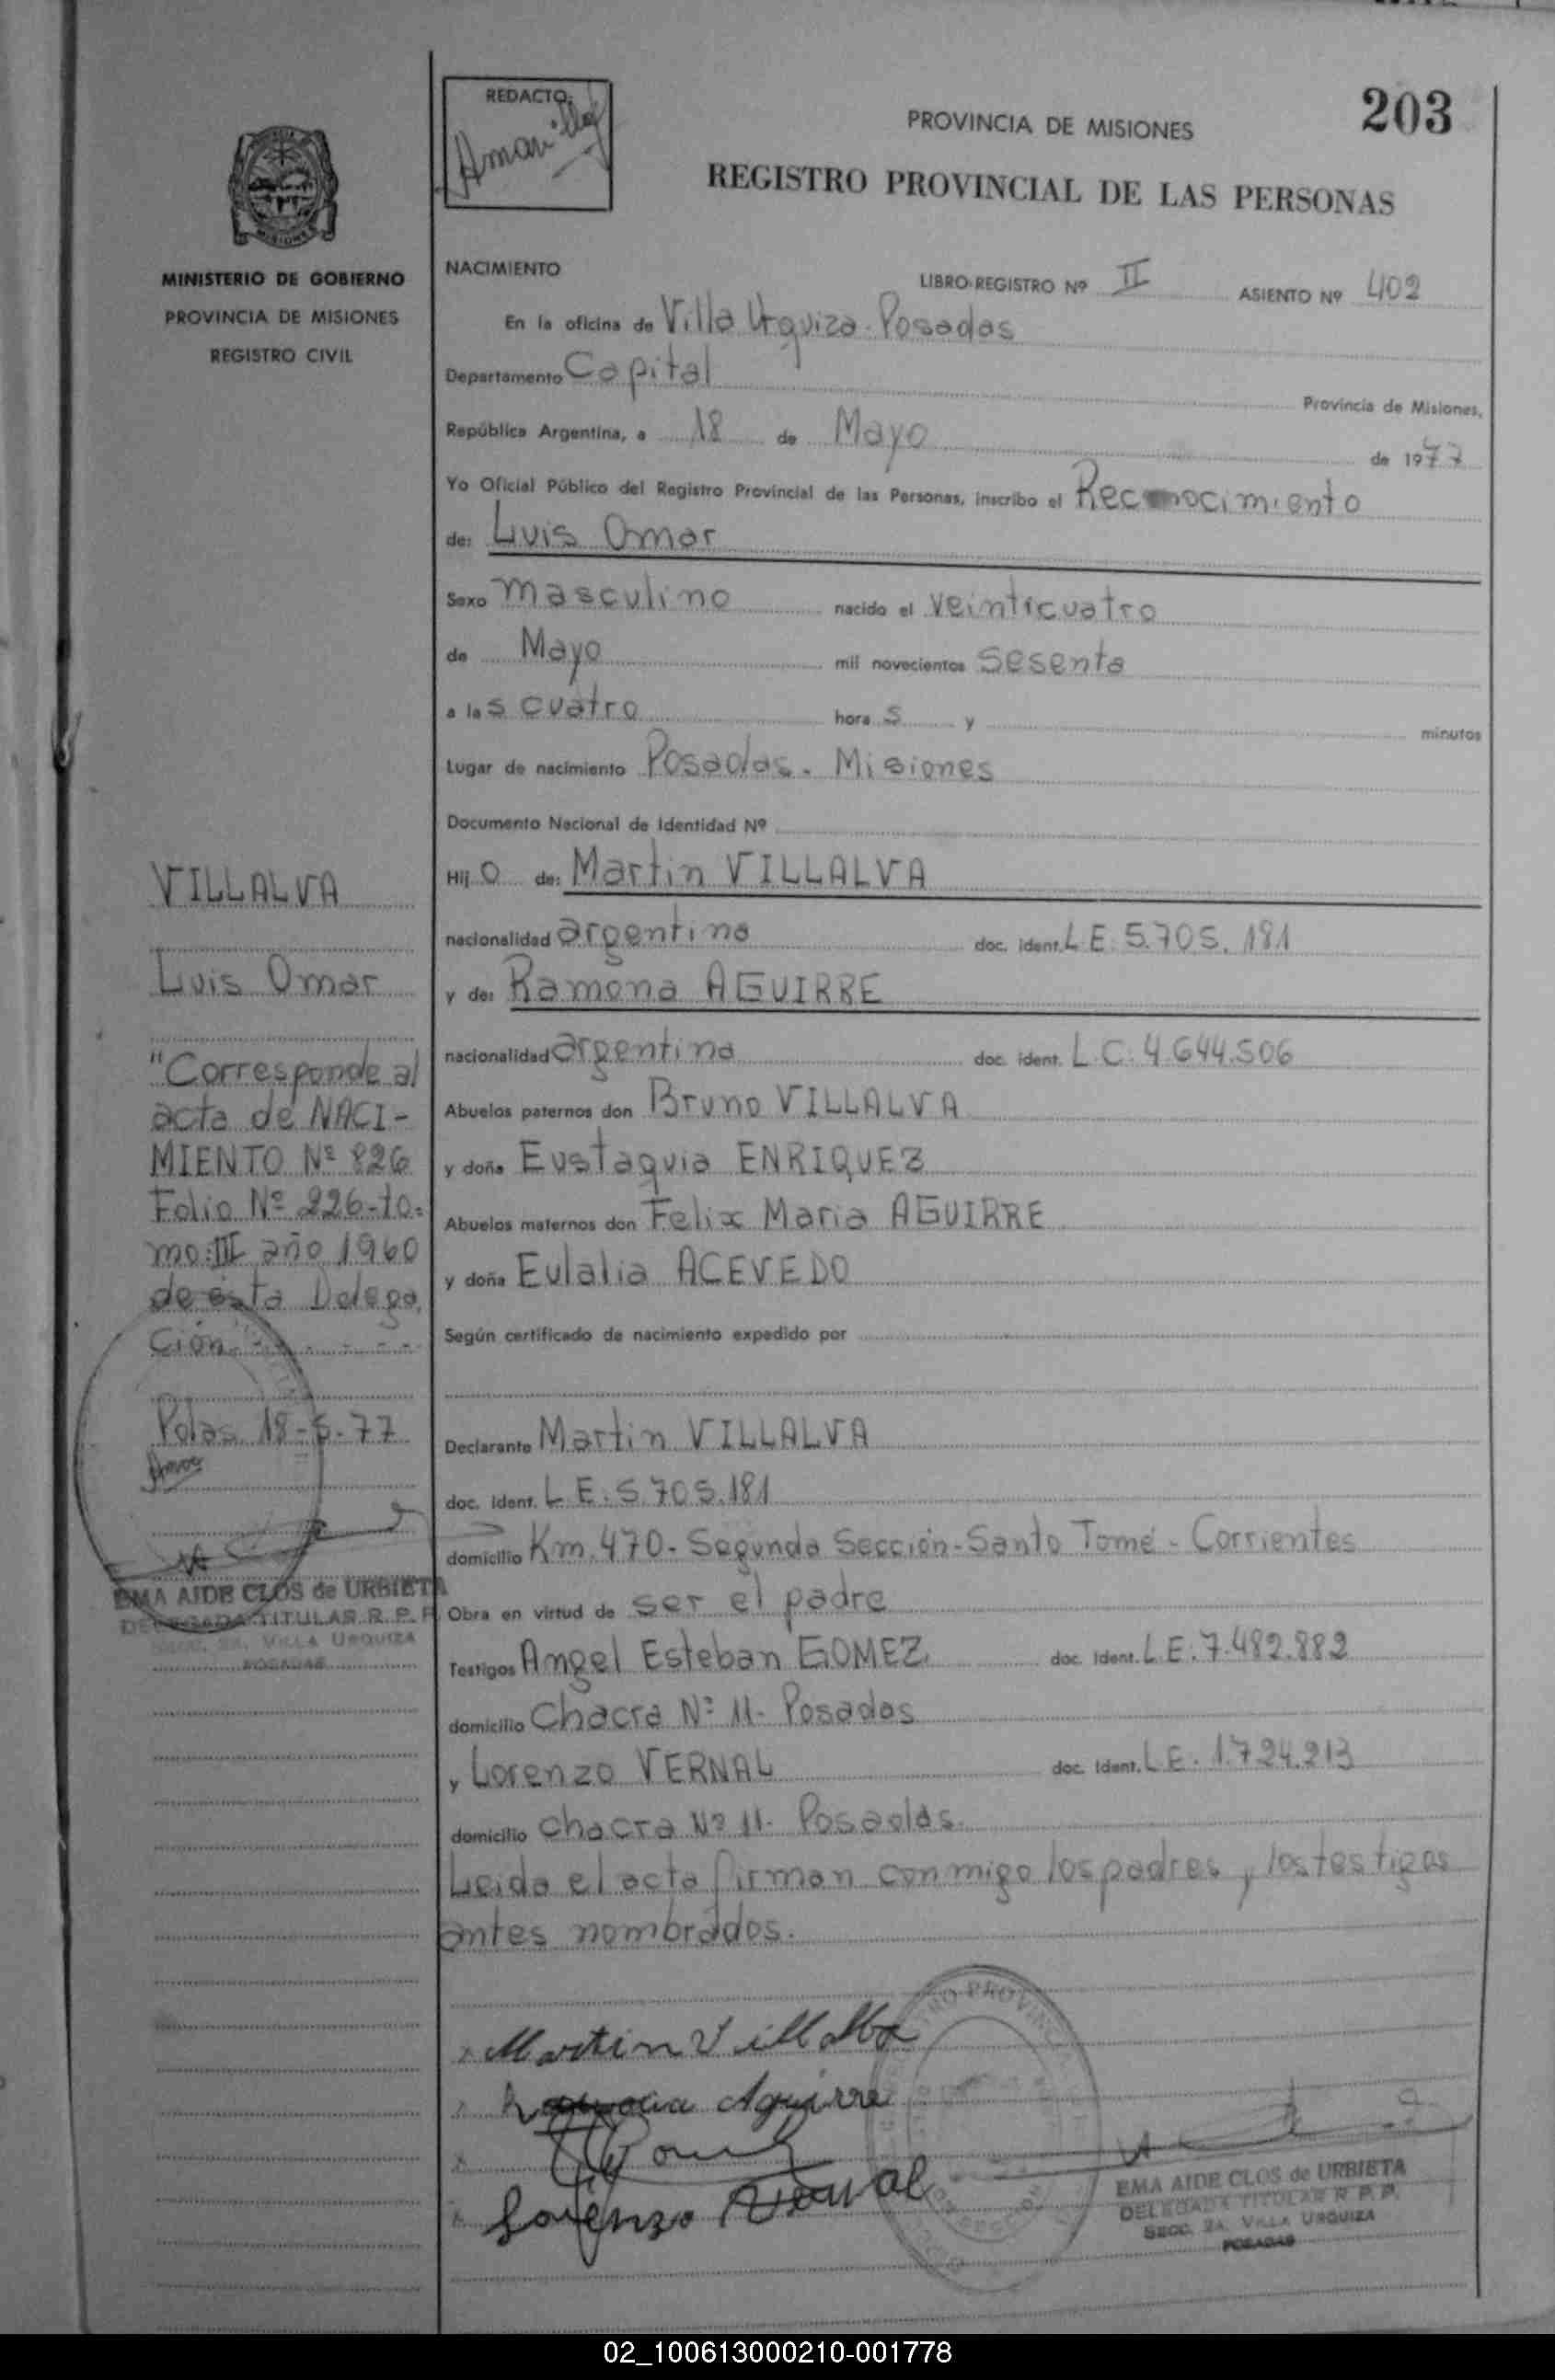 203
REDACTO:
PROVINCIA DE MISIONES
REGISTRO PROVINCIAL DE LAS PERSONAS
MISIONES
MINISTERIO DE GOBIERNO
PROVINCIA DE MISIONES
REGISTRO CIVIL
NACIMIENTO LIBRO-REGISTRO Nº II ASIENTO Nº 402
En la oficina de Villa Urquiza - Posadas
Departamento Capital Provincia de Misiones,
República Argentina, a 18 de Mayo de 1977
Yo Oficial Público del Registro Provincial de las Personas, inscribo el Reconocimiento
de: Luis Omar
Sexo masculino nacido el veinticuatro
de Mayo mil novecientos sesenta
a las cuatro horas y minutos
Lugar de nacimiento Posadas. Misiones
Documento Nacional de Identidad Nº
Hijo de: Martin VILLALVA
nacionalidad argentino doc. ident. L E. 5.705.181
y de: Ramona AGUIRRE
nacionalidad argentina doc. ident. L.C. 4.644.506
Abuelos paternos don Bruno VILLALVA
y doña Eustaquia ENRIQUEZ
Abuelos maternos don Felix Maria AGUIRRE
y doña Eulalia ACEVEDO
Según certificado de nacimiento expedido por
Declarante Martin VILLALVA
doc. ident. L E. 5.705.181
domicilio Km. 470 - Segunda Sección - Santo Tomé - Corrientes
Obra en virtud de ser el padre
Testigos Angel Esteban GOMEZ. doc. ident. L.E: 7.482.882
domicilio Chacra Nº 11 - Posadas
y Lorenzo VERNAL doc. ident. L E. 1.724.213
domicilio Chacra Nº 11 - Posadas.
Leida el acta firman conmigo los padres, los testigos
antes nombrados.
VILLALVA
Luis Omar
"Corresponde al
acta de NACI-
MIENTO Nº 826
Folio Nº 226 - to-
mo: III año 1960
de esta Delega
ción."
Pdas. 18-5-77
EMA AIDE CLOS de URBIETA
DELEGADA TITULAR R. P. P.
SECC. 2A. VILLA URQUIZA
POSADAS
Martin Villalba
Aguirre
Lorenzo Vernal
EMA AIDE CLOS de URBIETA
DELEGADA TITULAR R. P. P.
SECC. 2A. VILLA URQUIZA
POSADAS
02_100613000210-001778